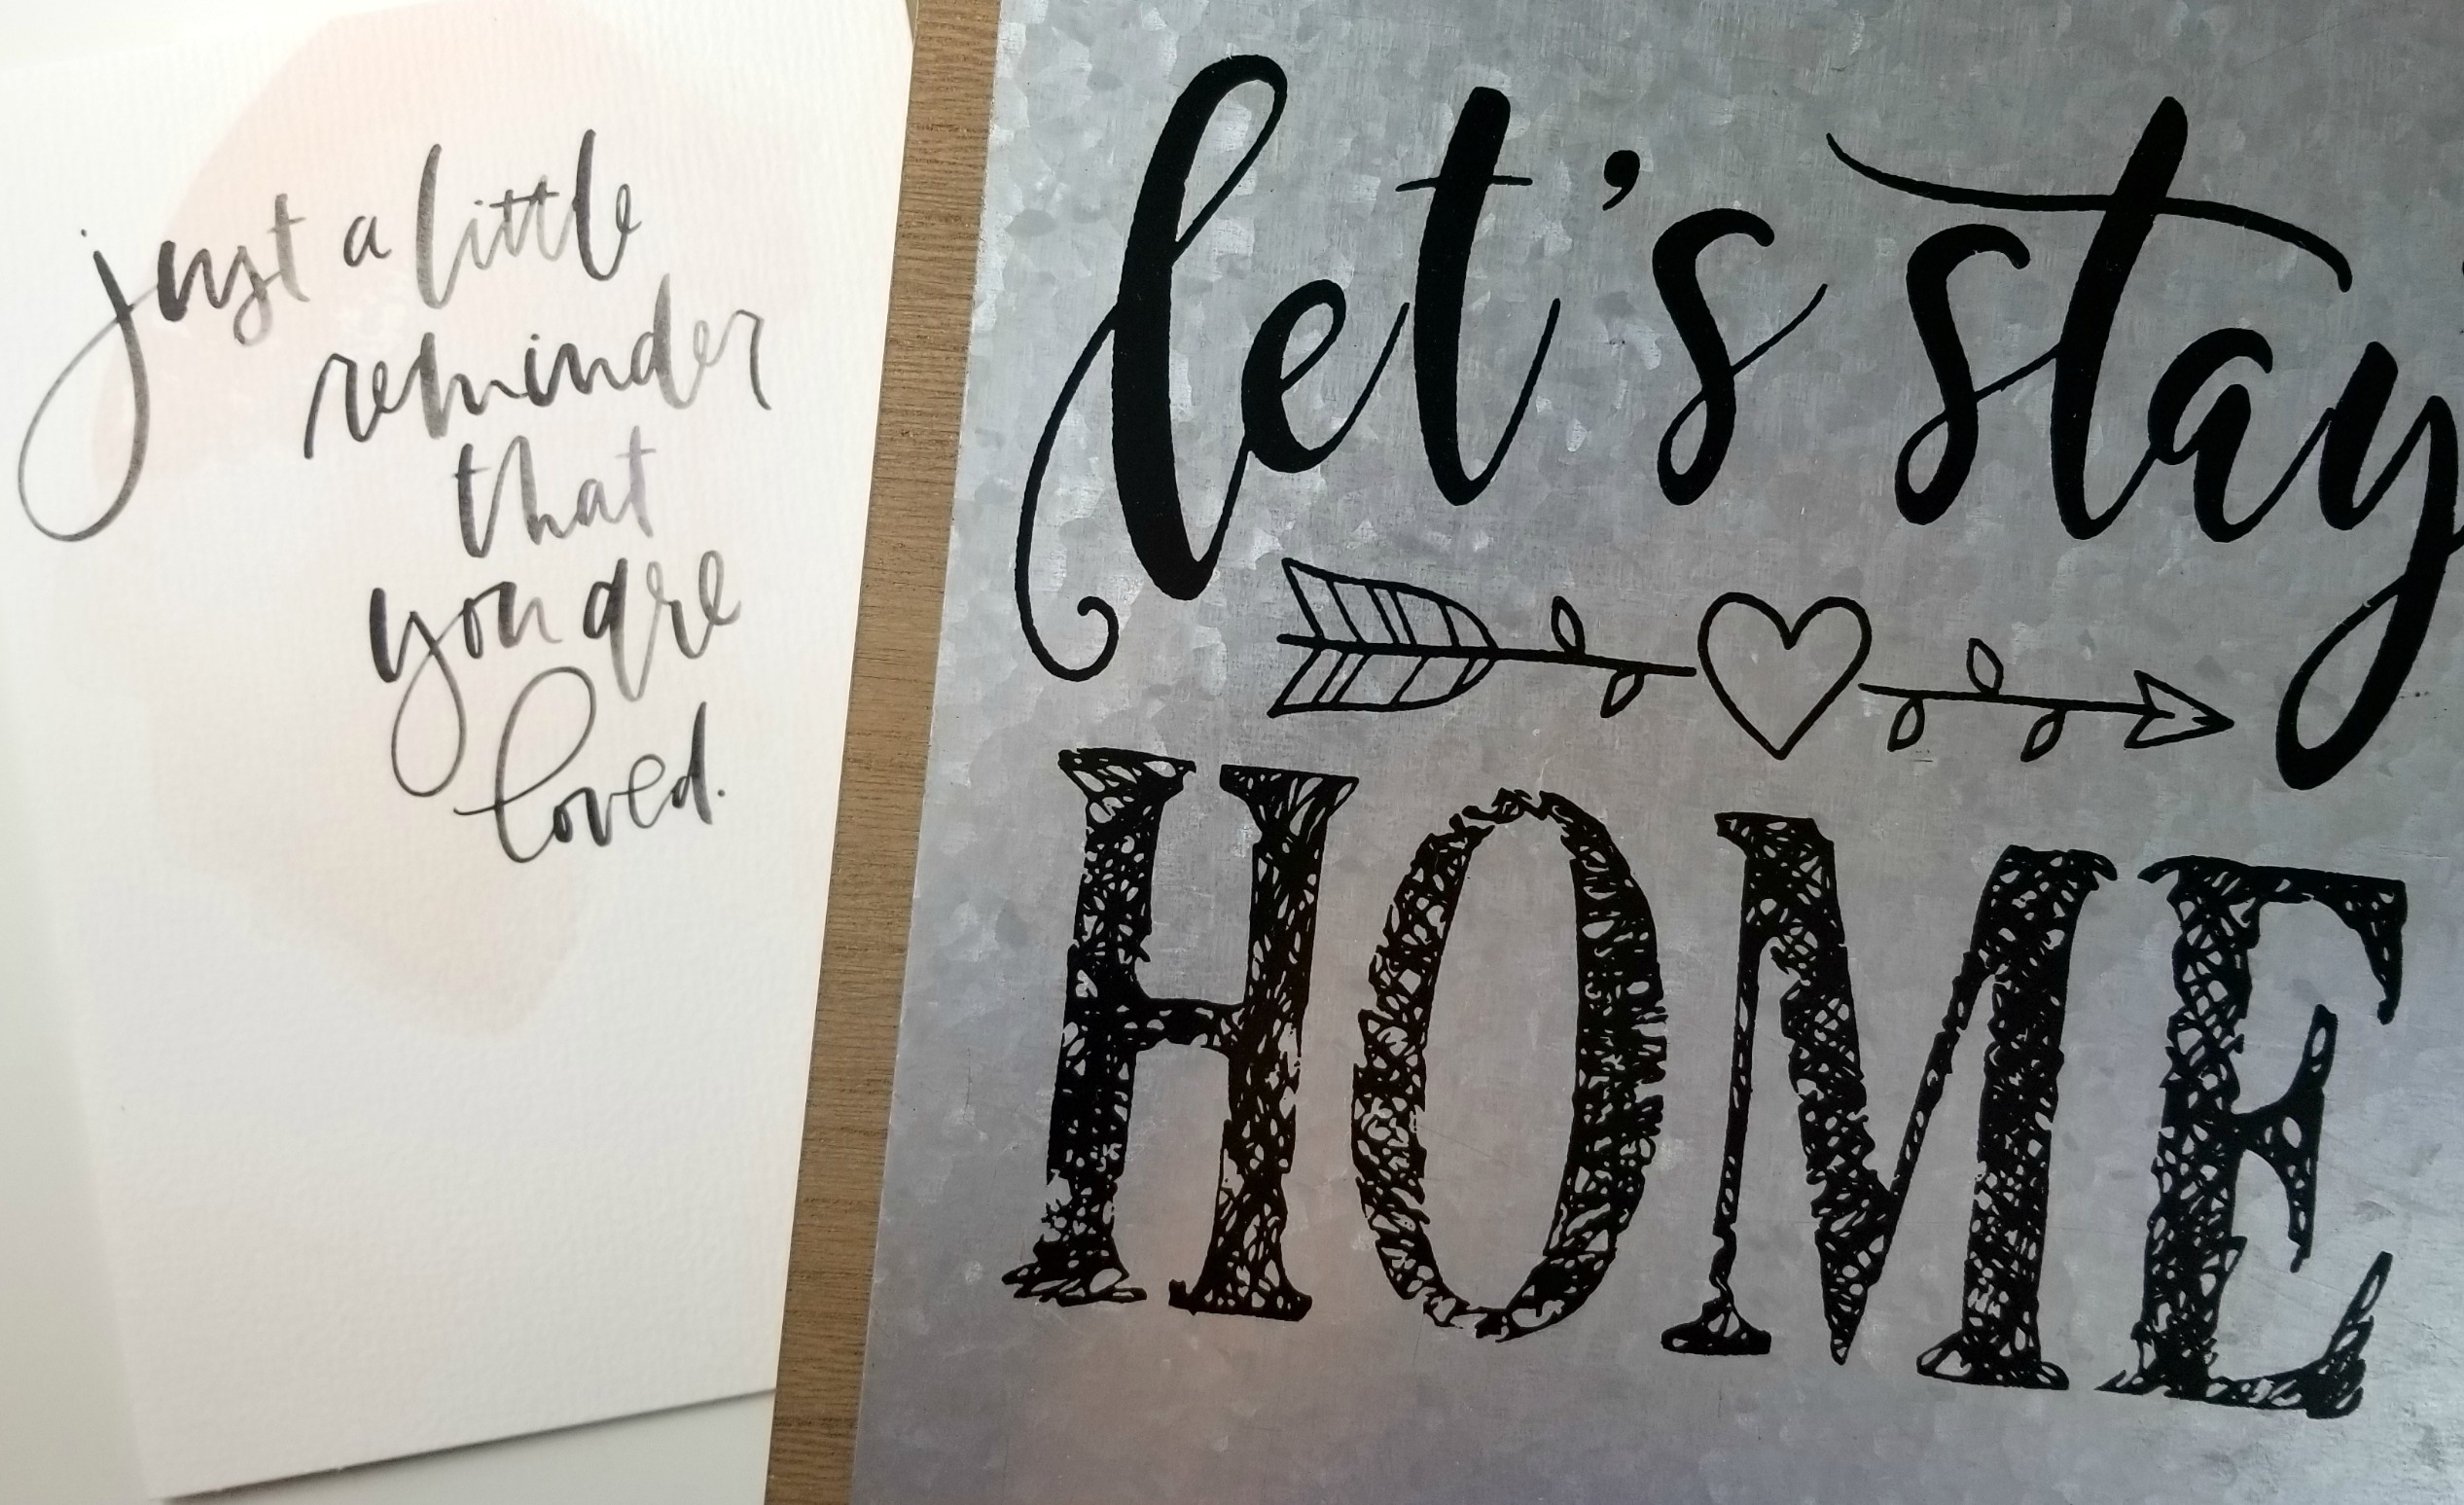 just a little
reminder
that
you are
loved.
let's stay
HOME